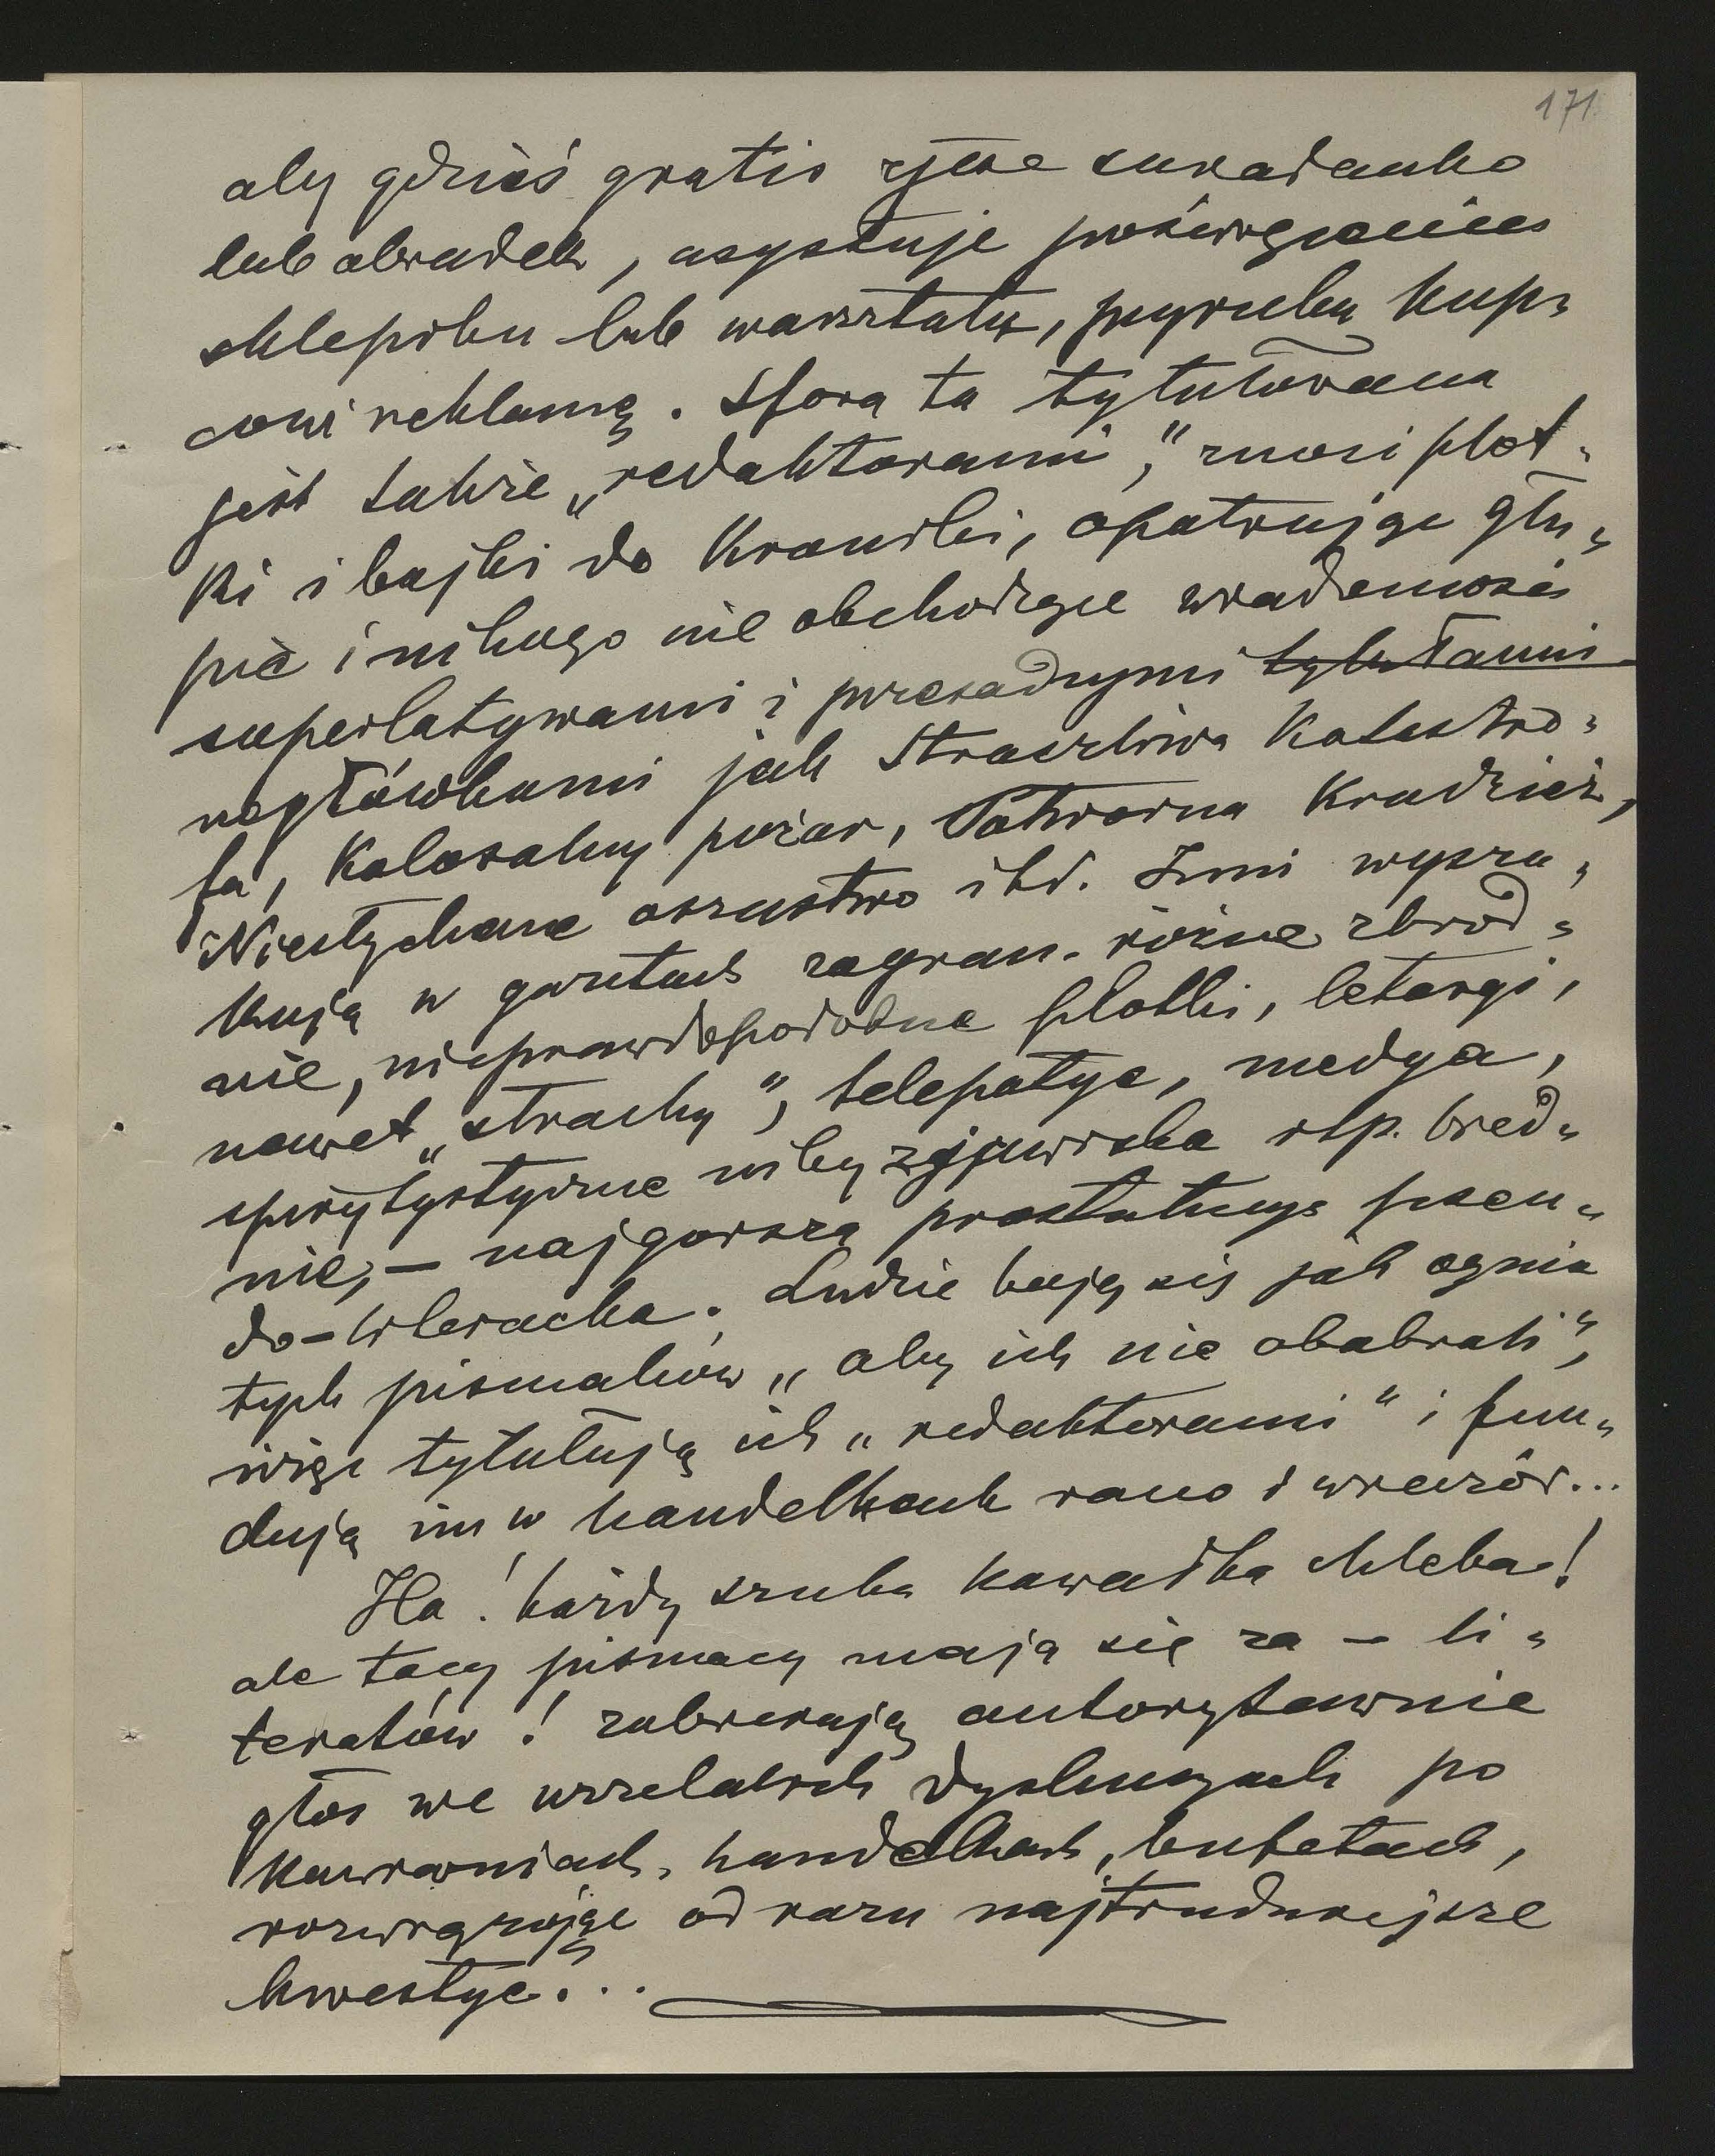 171
aby gdzieś gratis zjeść śniadanko
lub obiadek, asystuje poświęceniu
sklepiku lub warsztatu, pyrieku kup=
cowi reklamę. Sfora ta tytułowana
jest także „redaktorami”, znosi plot=
ki i bajki do Kroniki, opatrując głu=
pie i nikogo nie obchodzące wiadomości
superlatywami i przesadnymi tytułami
nagłówkami jak Straszliwa Katastro=
fa, Kolosalny pożar, Potworna Kradzież,
Niesłychane oszustwo itd. Inni wyszu=
kują w gazetach zagran. różne zbrod=
nie, nieprawdopodobne plotki, letargi,
nawet „strachy”, telepatye, medya,
spirytystyczne niby zjawiska itp. bred=
nie, – najgorszą prostytucyę pseu=
do-literacka. Ludzie boją się jak ognia
tych pismaków „aby ich nie obabrali”,
więc tytułują ich „redaktorami” i fun=
dują im w handelkach rano i wieczór...
Ha! każdy szuka kawałka chleba!
ale tacy pismacy mają się za – li=
teratów! zabierają autorytawnie
głos we wszelakich dyskusyach po
kawiarniach, handelkach, bufetach,
rozwiązując od razu najtrudniejsze
kwestye...